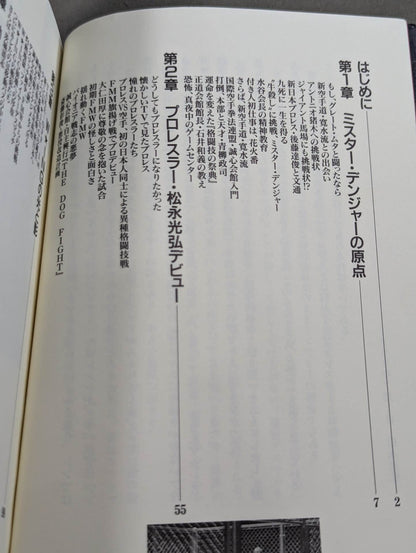 はじめに 2
第1章 ミスター・デンジャーの原点 7
もし、グレート・ムタと闘ったなら
新空手道・寛水流との出会い
アントニオ猪木への挑戦状
ジャイアント馬場にも挑戦状!?
新日本プロレス・後藤達俊と文通
九死に一生を得る
“牛殺し”に挑戦、ミスター・デンジャー
水谷会長の精神教育
付き人初仕事は、花火番
さらば、新空手道・寛水流
国際空手拳法連盟・誠心会館入門
打倒、本部と天才・青柳政司
運命を変えた“格闘技の祭典”
正道会館館長・石井和義の教え
恐怖、真夜中のゲームセンター
第2章 プロレスラー・松永光弘デビュー 55
どうしてもプロレスラーになりたかった
懐かしいTVで見たプロレス
憧れのプロレスラーたち
プロレスVS空手、初の日本人同士による異種格闘技戦
FMW旗揚げ戦でプロデビュー
大仁田厚に尊敬の念を抱いた試合
初期FMWの怪しさと面白さ
揺れ動くFMW
THE DOG FIGHT』